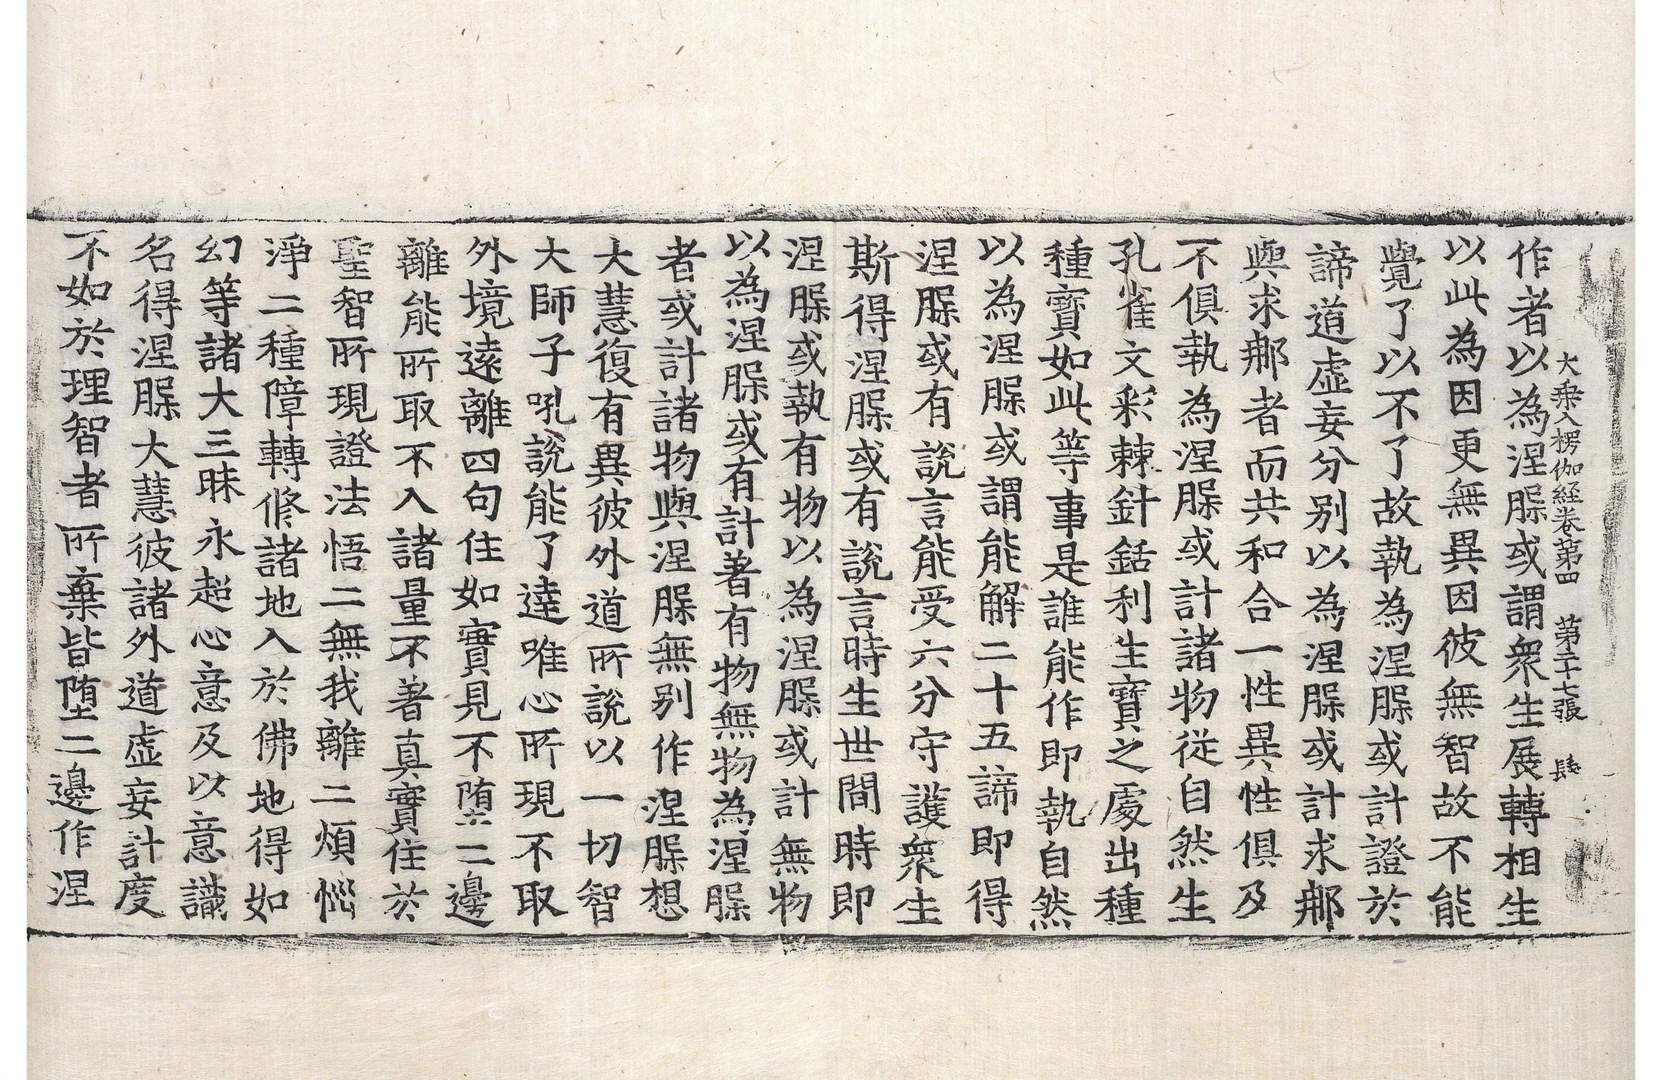 大乘入楞伽経卷第四 第二十七張 肆
作者以為涅槃或謂衆生展轉相生
以此為因更無異因彼無智故不能
覺了以不了故執為涅槃或計證於
諦道虛妄分別以為涅槃或計求那
與求那者而共和合一性異性俱及
不俱執為涅槃或計諸物從自然生
孔雀文彩棘針銛利生寶之處出種
種寶如此等事是誰能作即執自然
以為涅槃或謂能解二十五諦即得
涅槃或有說言能受六分守護衆生
斯得涅槃或有說言時生世間時即
涅槃或執有物以為涅槃或計無物
以為涅槃或有計著有物無物為涅槃
者或計諸物與涅槃無別作涅槃想
大慧復有異彼外道所說以一切智
大師子吼說能了達唯心所現不取
外境遠離四句住如實見不堕二邊
離能所取不入諸量不著真實住於
聖智所現證法悟二無我離二煩惱
淨二種障轉修諸地入於佛地得如
幻等諸大三昧永超心意及以意識
名得涅槃大慧彼諸外道虛妄計度
不如於理智者所棄皆堕二邊作涅